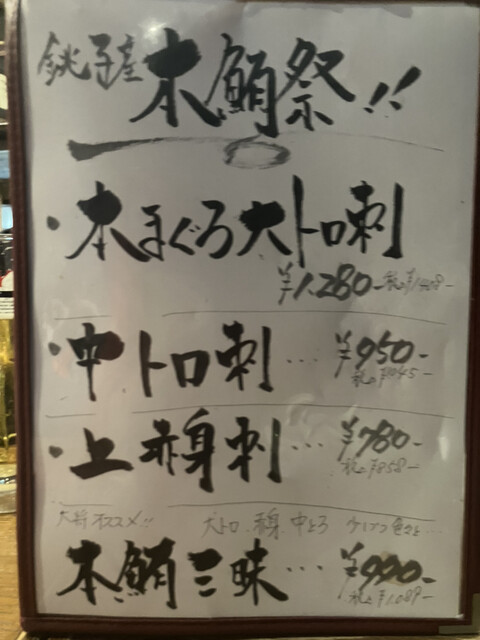 銚子産 本鮪祭!!
・本まぐろ大トロ刺
¥1,280- 税込¥1408-
・中トロ刺… ¥950-
税込¥1045-
・上赤身刺… ¥780-
税込¥858-
大将オススメ!! 大トロ、赤身、中とろ 色々と…
本鮪三昧… ¥990-
税込¥1,089-